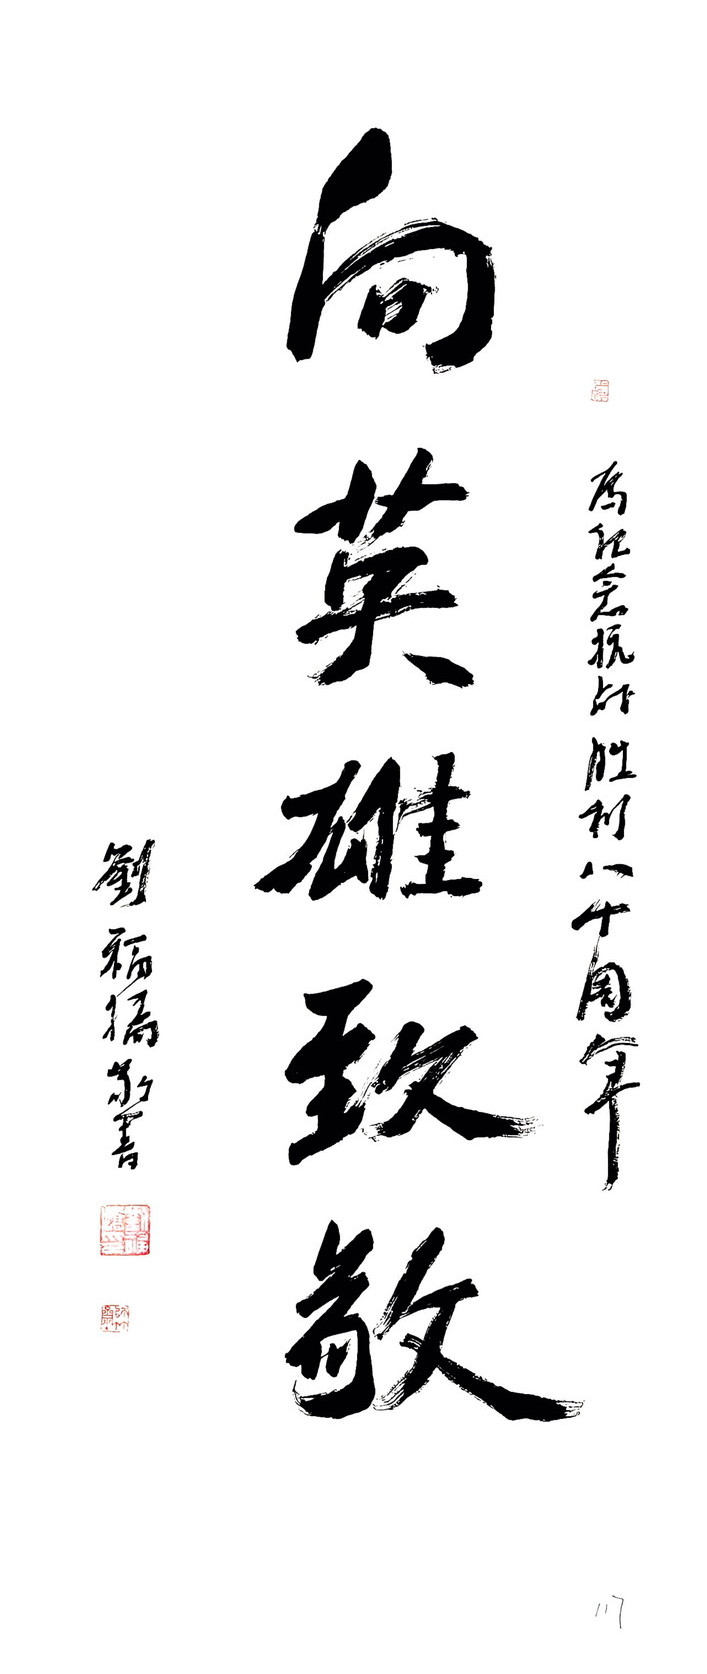 为纪念抗战胜利八十周年
向英雄致敬
劉福橋敬書
117